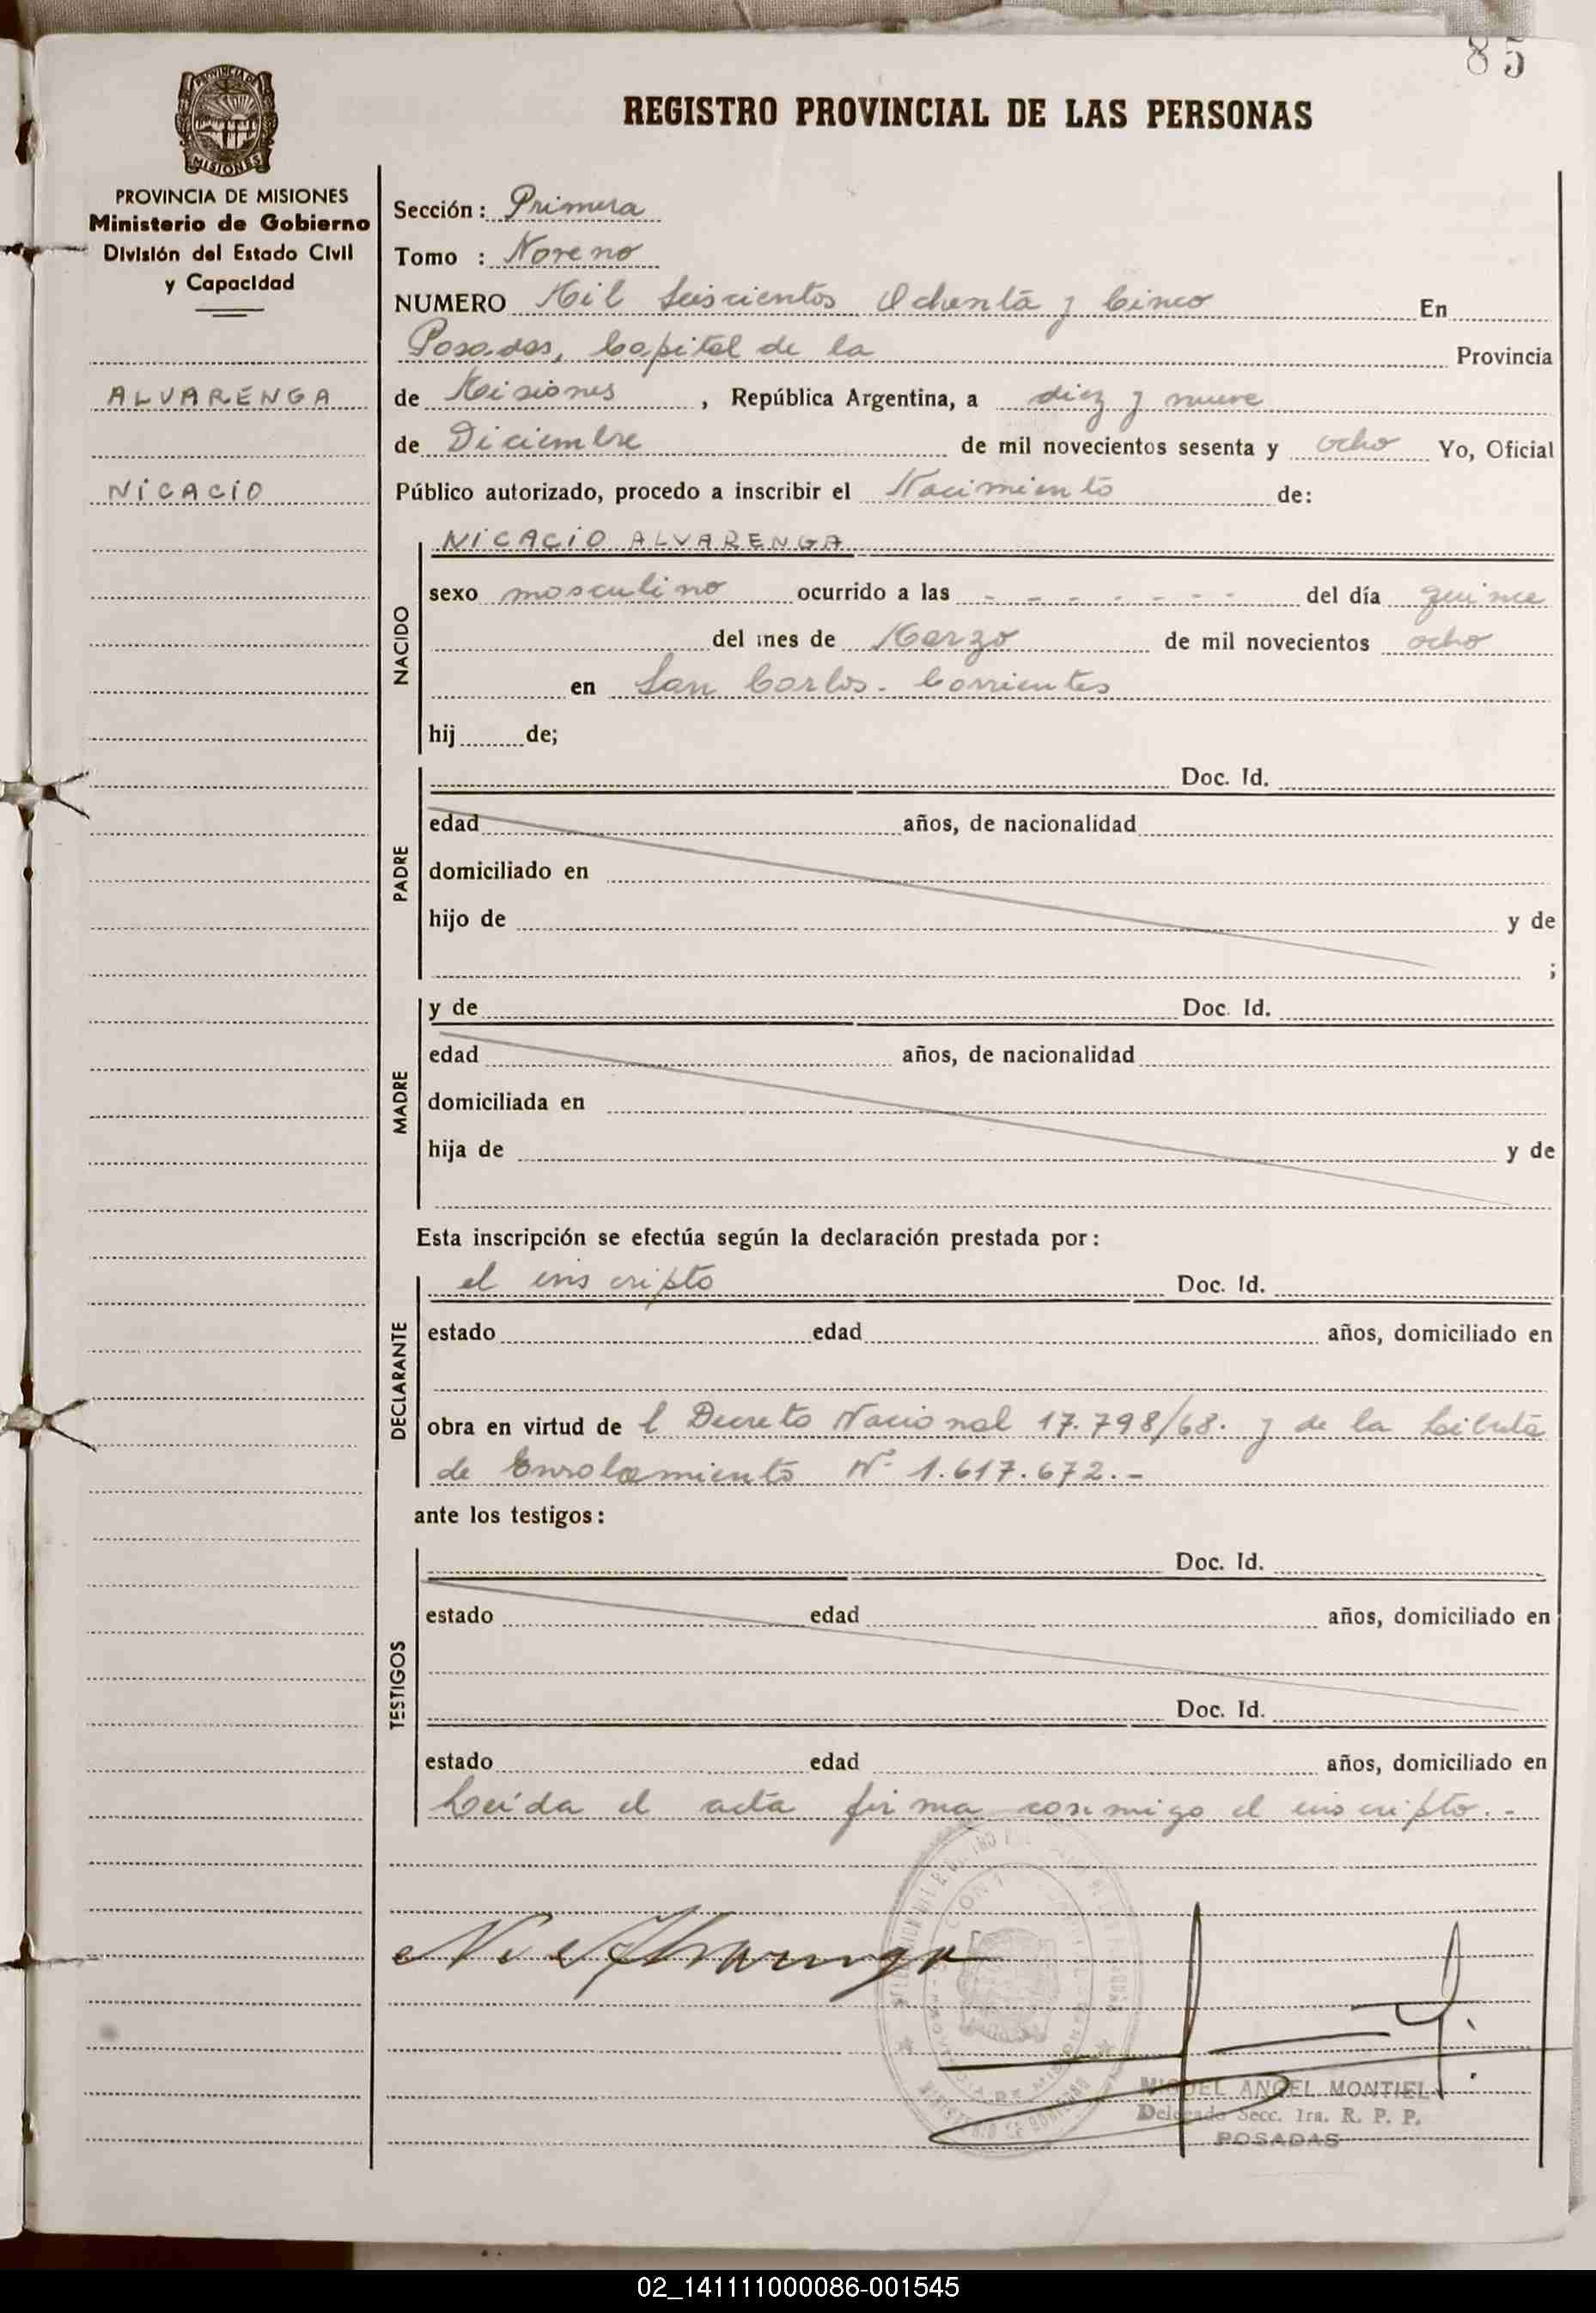 85
PROVINCIA DE
MISIONES
REGISTRO PROVINCIAL DE LAS PERSONAS
PROVINCIA DE MISIONES
Ministerio de Gobierno
División del Estado Civil
y Capacidad
ALVARENGA
NICACIO
Sección: Primera
Tomo : Noveno
NUMERO Mil Seiscientos Ochenta y Cinco En
Posadas, Capital de la Provincia
de Misiones, República Argentina, a diez y nueve
de Diciembre de mil novecientos sesenta y ocho Yo, Oficial
Público autorizado, procedo a inscribir el Nacimiento de:
NACIDO
NICACIO ALVARENGA
sexo masculino ocurrido a las - - - - - - - del día quince
del mes de Marzo de mil novecientos ocho
en San Carlos - Corrientes
hij de;
PADRE
Doc. Id.
edad años, de nacionalidad
domiciliado en
hijo de y de
;
MADRE
y de Doc. Id.
edad años, de nacionalidad
domiciliada en
hija de y de
Esta inscripción se efectúa según la declaración prestada por:
DECLARANTE
el inscripto Doc. Id.
estado edad años, domiciliado en
obra en virtud de l Decreto Nacional 17.798/68. y de la Libreta
de Enrolamiento Nº 1.617.672.-
ante los testigos:
TESTIGOS
Doc. Id.
estado edad años, domiciliado en
Doc. Id.
estado edad años, domiciliado en
Leída el acta firma conmigo el inscripto.-
N. Alvarenga
MIGUEL ANGEL MONTIEL
Delegado Secc. 1ra. R. P. P.
POSADAS
02_141111000086-001545